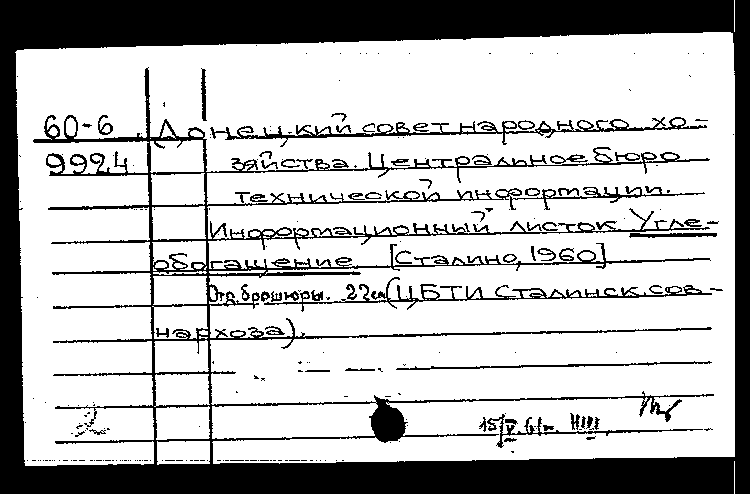 60-6 Донецкий совет народного хо-
992,4 зяйства. Центральное бюро
технической информации.
Информационный листок Угле-
обогащение [Сталино, 1960]
Отд. брошюры. 22см (ЦБТИ Сталинск. сов-
нархоза).
2 15/V.61г.